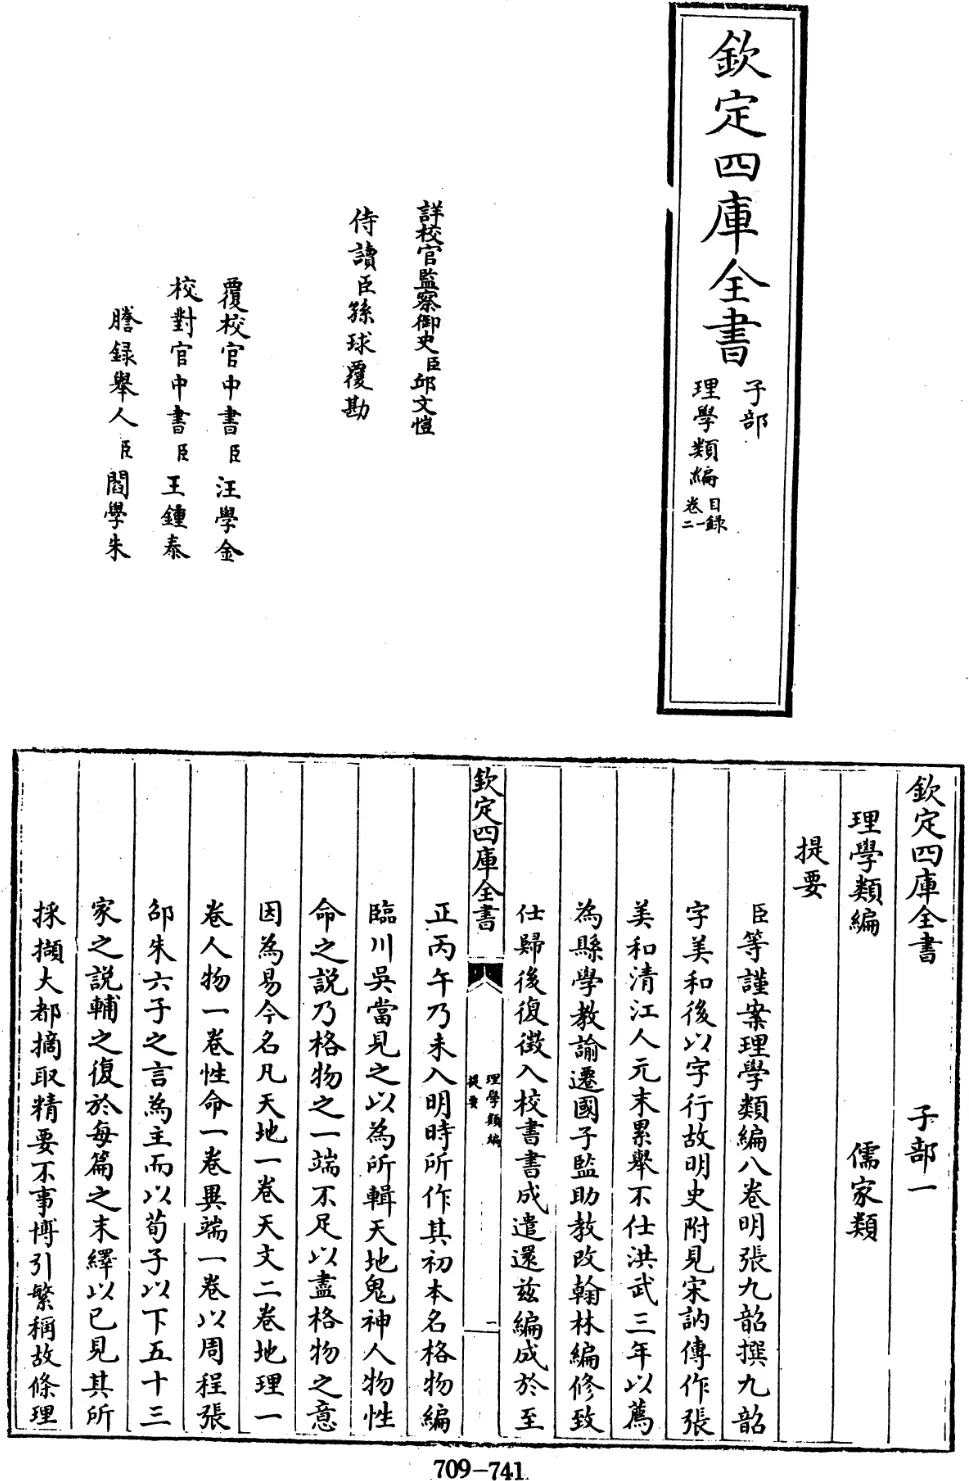 欽定四庫全書
子部
理學類編
目録
卷一
二
詳校官監察御史臣邱文愷
侍讀臣孫球覆勘
覆校官中書臣汪學金
校對官中書臣王鍾泰
謄録舉人臣閻學朱
欽定四庫全書 子部一
理學類編 儒家類
提要
臣等謹案理學類編八卷明張九韶撰九韶
字美和後以字行故明史附見宋訥傳作張
美和清江人元末累舉不仕洪武三年以薦
為縣學教諭遷國子監助教改翰林編修致
仕歸後復徴入校書書成遣還兹編成於至
欽定四庫全書
理學類編
提要
一
正丙午乃未入明時所作其初本名格物編
臨川吳當見之以為所輯天地鬼神人物性
命之説乃格物之一端不足以盡格物之意
因為易今名凡天地一卷天文二卷地理一
卷人物一卷性命一卷異端一卷以周程張
邵朱六子之言為主而以荀子以下五十三
家之説輔之復於每篇之末繹以已見其所
採擷大都摘取精要不事博引繁稱故條理
709-741